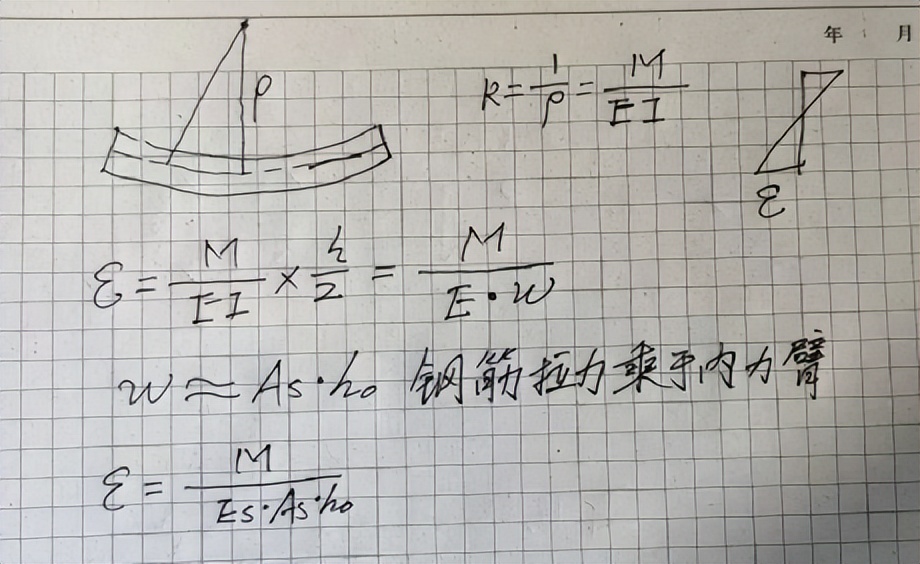 年 月
ρ
K = 1/ρ = M/EI
ε
ε = M/EI × h/2 = M/E·W
W ≈ As·h₀ 钢筋拉力乘于内力臂
ε = M/Es·As·h₀